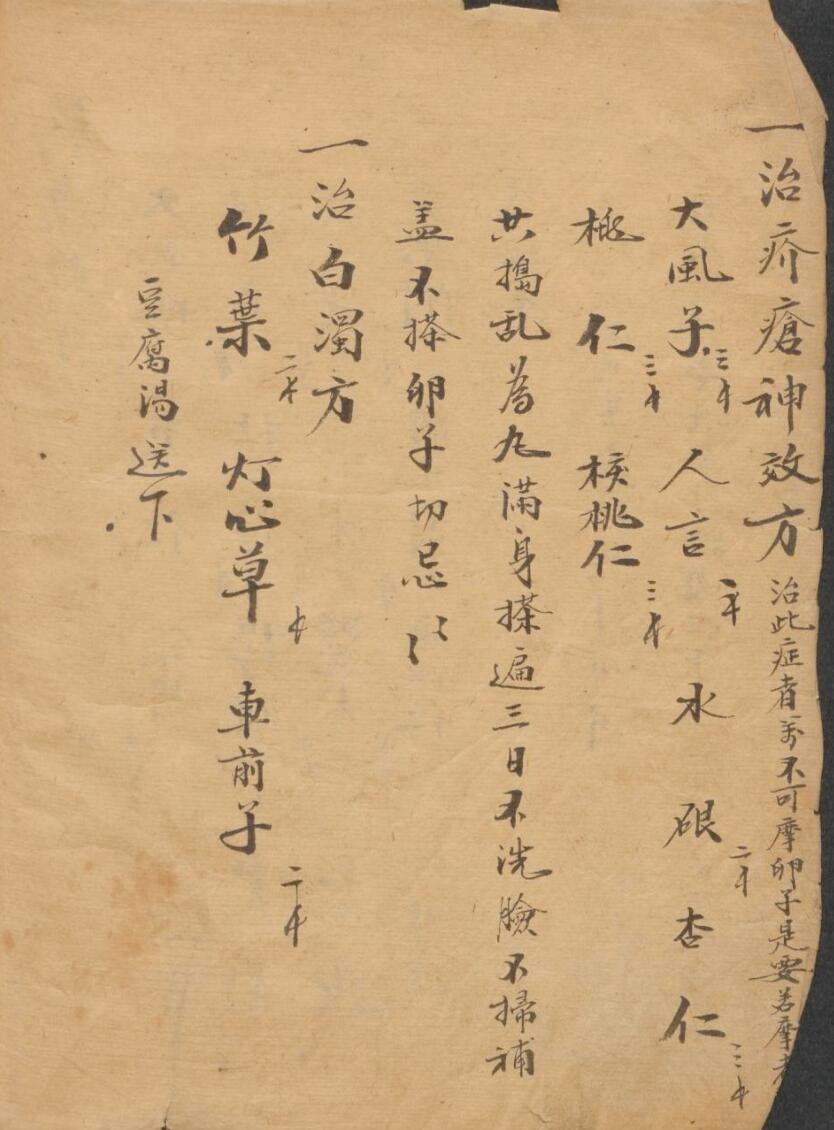 一治疥瘡神效方 治此症者萬不可摩卵子是要若摩
大風子三个 人言一个 水砄二个 杏仁三个
桃仁三个 核桃仁三个
共搗乱為丸滿身搽遍三日不洗臉不掃補
盖不搽卵子切忌〻
一治白濁方
竹葉二个 灯心草个 車前子二个
豆腐湯送下